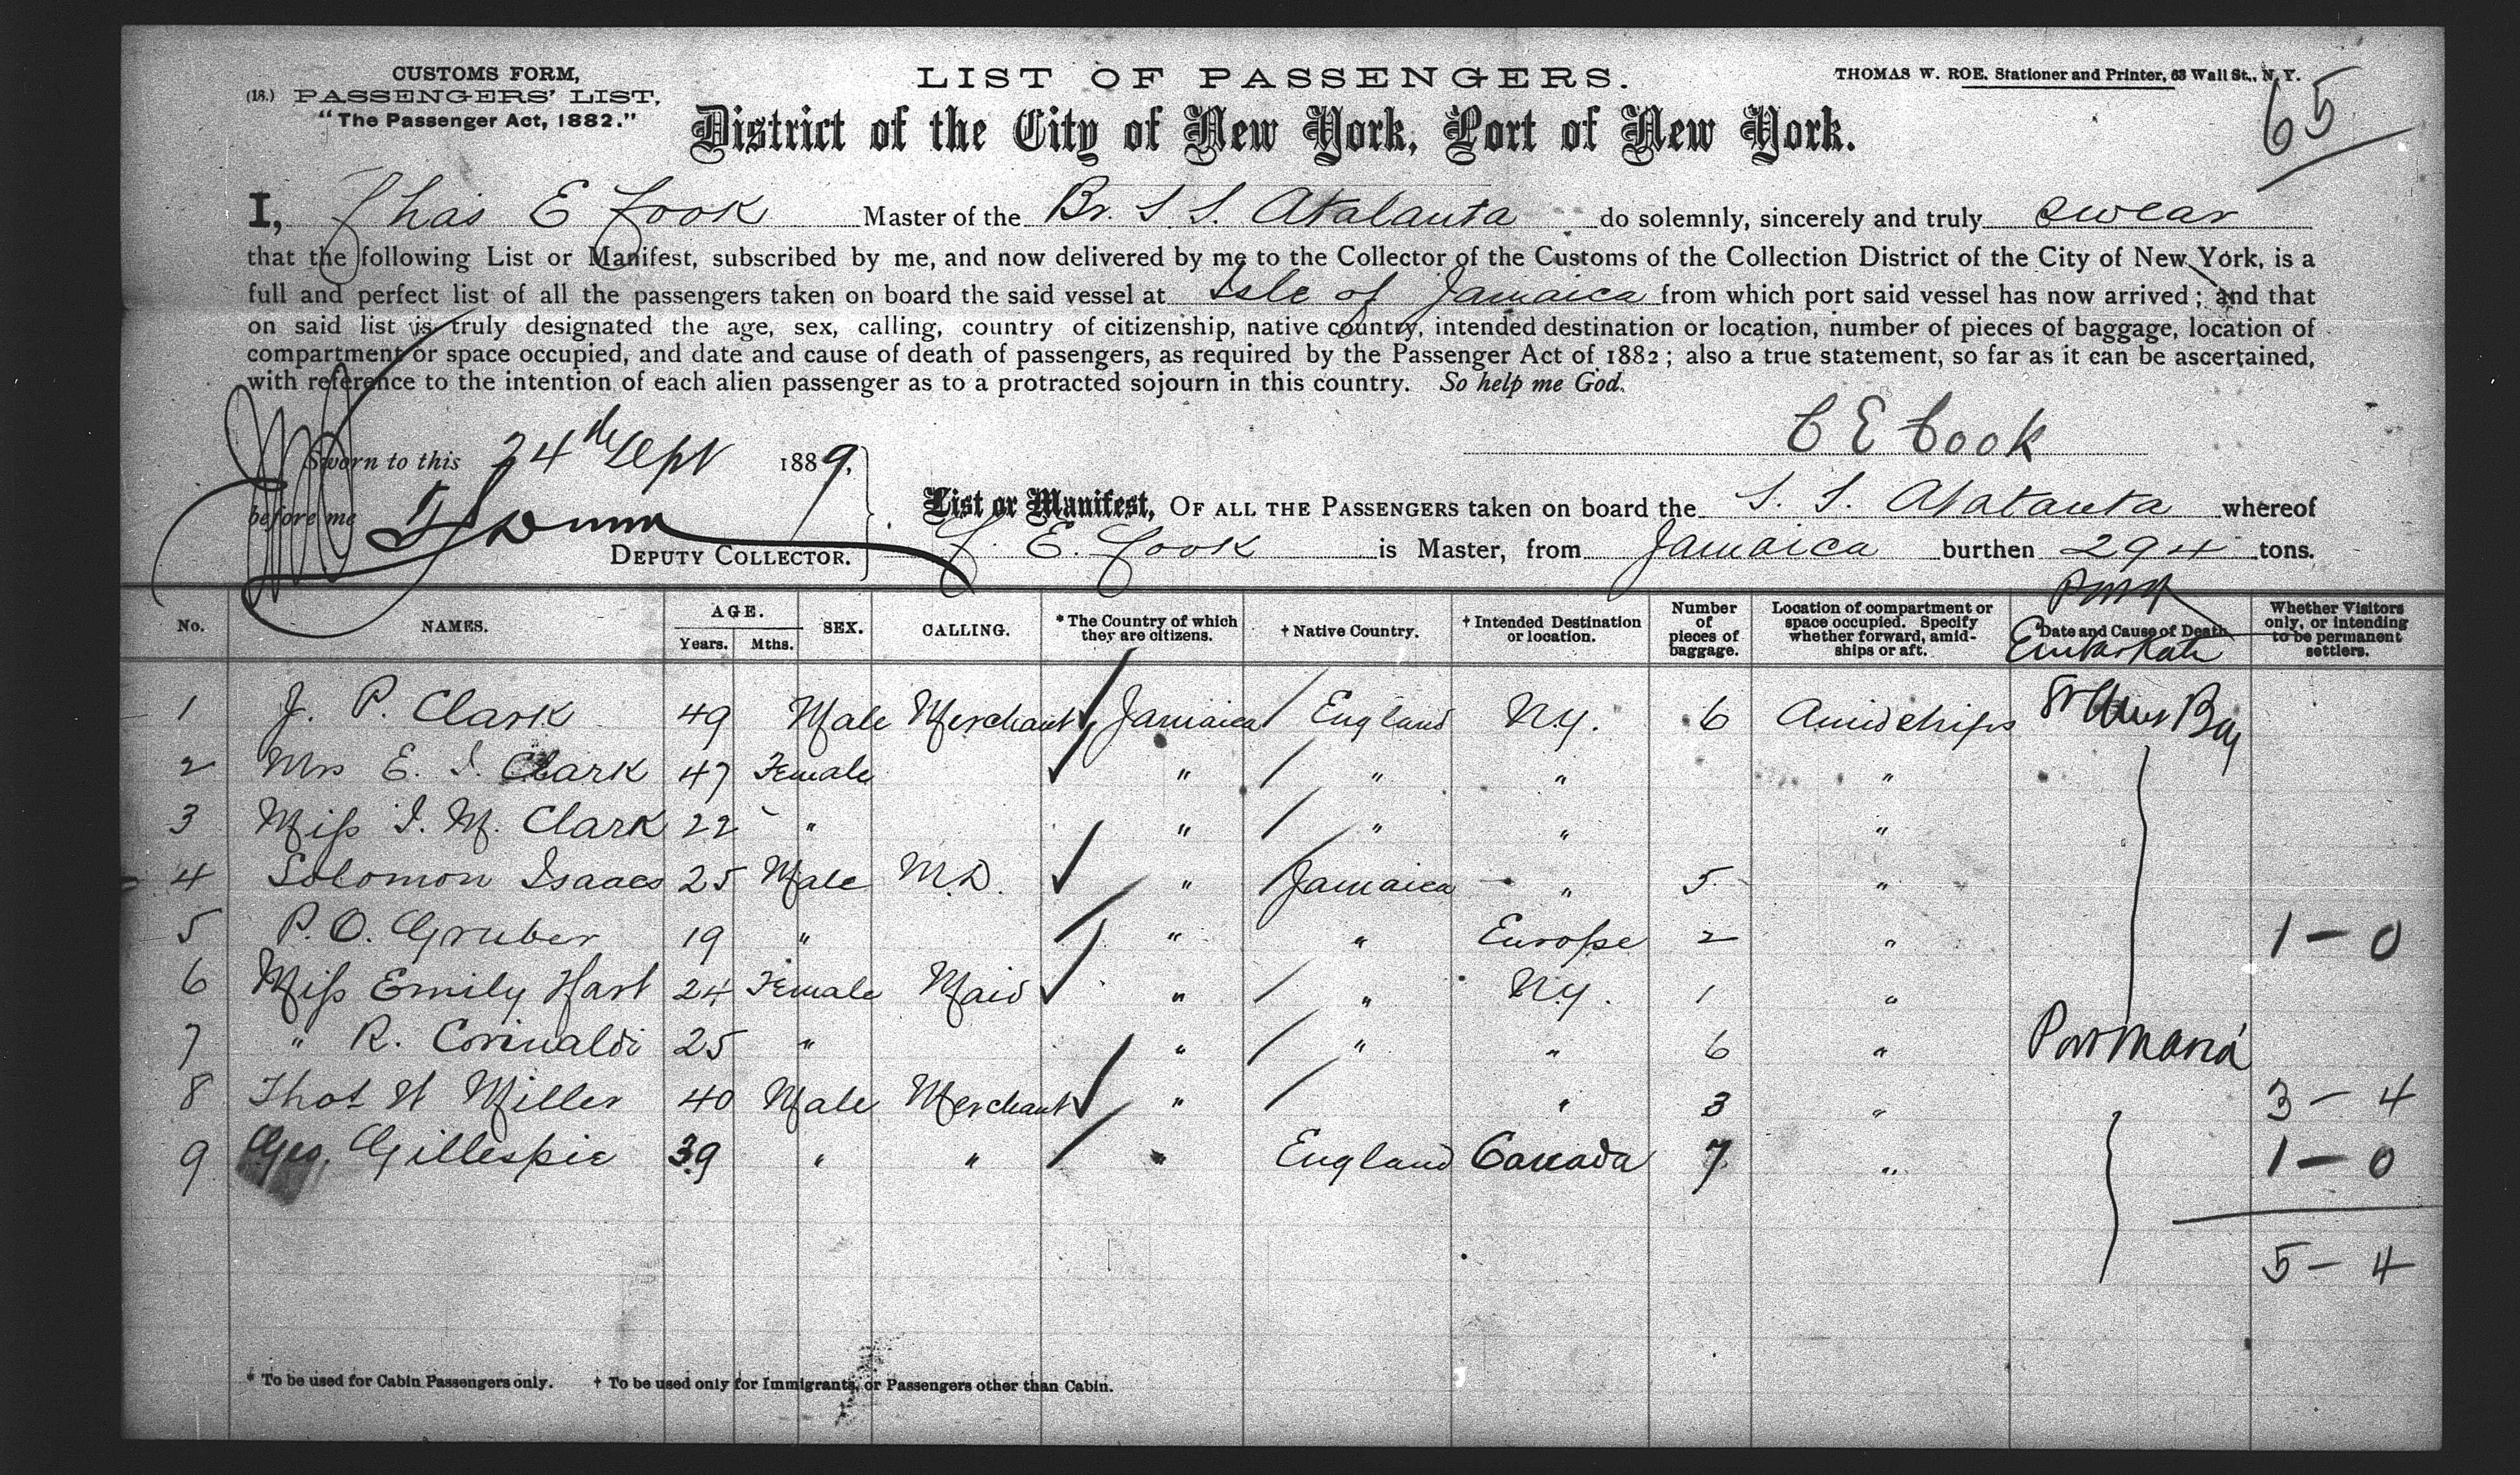 CUSTOMS FORM,
(18.) PASSENGERS' LIST,
"The Passenger Act, 1882."
LIST OF PASSENGERS.
THOMAS W. ROE, Stationer and Printer, 63 Wall St., N.Y.
65
District of the City of New York, Port of New York.
I, Chas E Cook Master of the Br. S S. Atalanta do solemnly, sincerely and truly swear
that the following List or Manifest, subscribed by me, and now delivered by me to the Collector of the Customs of the Collection District of the City of New York, is a
full and perfect list of all the passengers taken on board the said vessel at Isle of Jamaica from which port said vessel has now arrived; and that
on said list is truly designated the age, sex, calling, country of citizenship, native country, intended destination or location, number of pieces of baggage, location of
compartment or space occupied, and date and cause of death of passengers, as required by the Passenger Act of 1882; also a true statement, so far as it can be ascertained,
with reference to the intention of each alien passenger as to a protracted sojourn in this country. So help me God.
C E Cook
Sworn to this 24th Sept 1889,
before me Dunn
DEPUTY COLLECTOR.
List or Manifest, OF ALL THE PASSENGERS taken on board the S. S. Atalanta whereof
C. E. Cook is Master, from Jamaica burthen 294 tons.
No. NAMES. AGE. Years. Mths. SEX. CALLING. *The Country of which they are citizens. † Native Country. † Intended Destination or location. Number of pieces of baggage. Location of compartment or space occupied. Specify whether forward, amidships or aft. Date and Cause of Death Port Embarkatn Whether Visitors only, or intending to be permanent settlers.
1 J. P. Clark 49 Male Merchant Jamaica England N.Y. 6 Amidships St Anns Bay
2 Mrs E. I. Clark 47 Female " " " "
3 Miss I. M. Clark 22 " " " " "
4 Solomon Isaacs 25 Male M.D. " Jamaica " 5 "
5 P. O. Gruber 19 " " " Europe 2 " 1 - 0
6 Miss Emily Hart 24 Female Maid " " N.Y. 1 "
7 " R. Corinaldi 25 " " " " 6 " Port Maria
8 Thos H Miller 40 Male Merchant " " 3 " 3 - 4
9 Geo. Gillespie 39 " " " England Canada 7 " 1 - 0
5 - 4
* To be used for Cabin Passengers only. † To be used only for Immigrants, or Passengers other than Cabin.